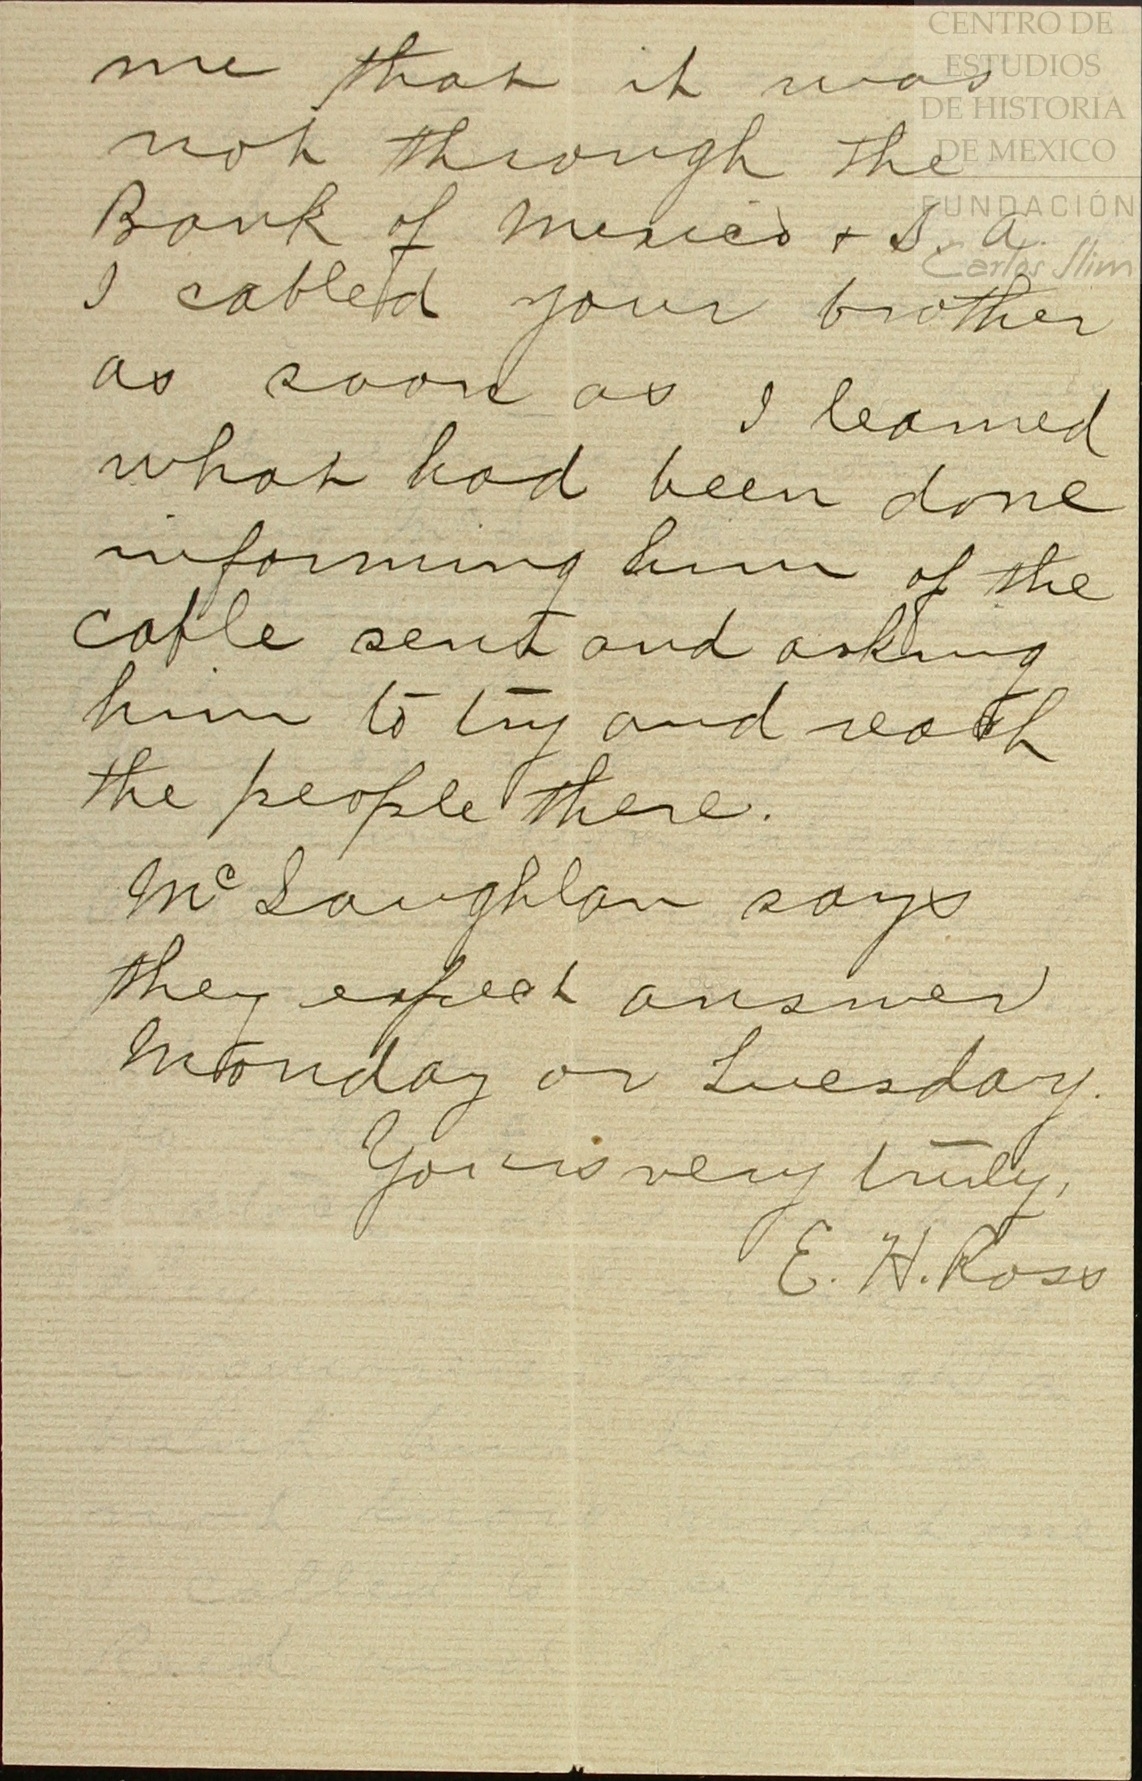 CENTRO DE
ESTUDIOS
DE HISTORIA
DE MEXICO
FUNDACIÓN
Carlos Slim
me that it was
not through the
Bank of Mexico & S. A.
I cabled your brother
as soon as I learned
what had been done
informing him of the
cable sent and asking
him to try and reach
the people there.
Mc Laughlan says
they expect answer
Monday or Tuesday.
Yours very truly,
E. H. Ross